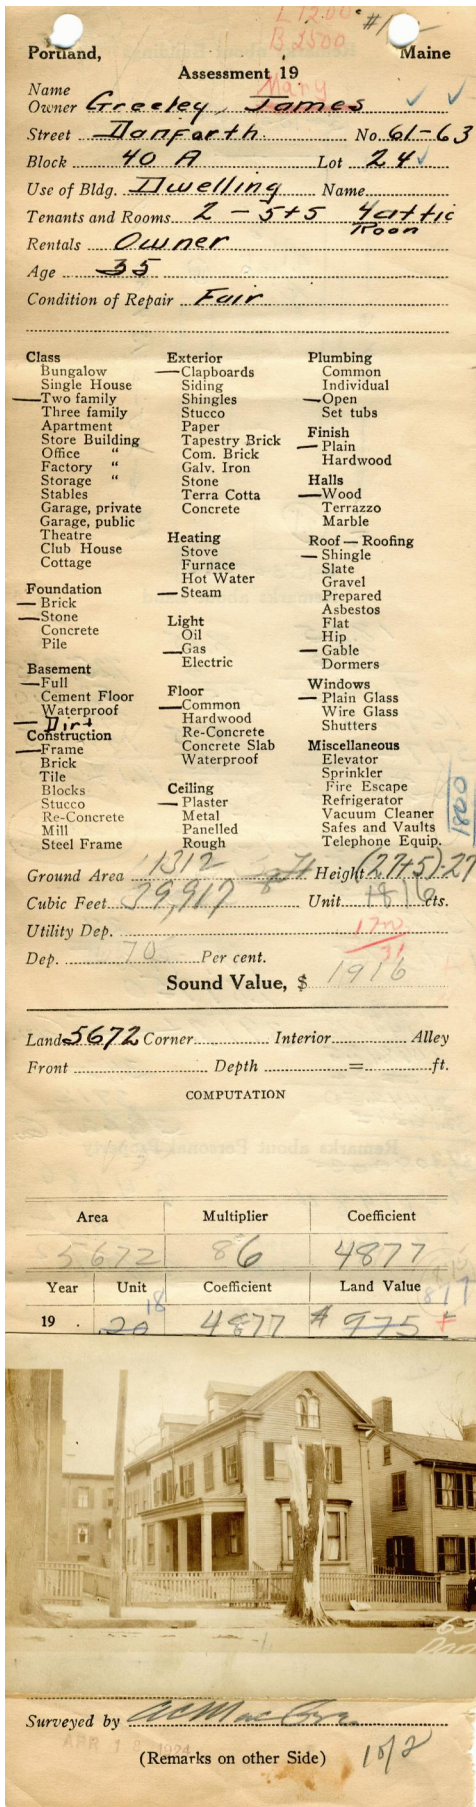 L 1200
B 2500
Portland, Maine
Assessment 19
Mary
Name
Owner Greeley, James
Street Danforth No. 61-63
Block 40 A Lot 24
Use of Bldg. Dwelling Name
Tenants and Rooms 2 - 5+5 4 attic
Room
Rentals Owner
Age 35
Condition of Repair Fair
Class
Bungalow
Single House
Two family
Three family
Apartment
Store Building
Office "
Factory "
Storage "
Stables
Garage, private
Garage, public
Theatre
Club House
Cottage
Foundation
Brick
Stone
Concrete
Pile
Basement
Full
Cement Floor
Waterproof
Dirt
Construction
Frame
Brick
Tile
Blocks
Stucco
Re-Concrete
Mill
Steel Frame
Exterior
Clapboards
Siding
Shingles
Stucco
Paper
Tapestry Brick
Com. Brick
Galv. Iron
Stone
Terra Cotta
Concrete
Heating
Stove
Furnace
Hot Water
Steam
Light
Oil
Gas
Electric
Floor
Common
Hardwood
Re-Concrete
Concrete Slab
Waterproof
Ceiling
Plaster
Metal
Panelled
Rough
Plumbing
Common
Individual
Open
Set tubs
Finish
Plain
Hardwood
Halls
Wood
Terrazzo
Marble
Roof — Roofing
Shingle
Slate
Gravel
Prepared
Asbestos
Flat
Hip
Gable
Dormers
Windows
Plain Glass
Wire Glass
Shutters
Miscellaneous
Elevator
Sprinkler
Fire Escape
Refrigerator
Vacuum Cleaner
Safes and Vaults
Telephone Equip.
1800
Ground Area 1312 Height (27+5)-27
Cubic Feet 39,917 Unit cts.
Utility Dep.
Dep. 70 Per cent.
Sound Value, $ 1916
Land 5672 Corner Interior Alley
Front Depth = ft.
COMPUTATION
Area Multiplier Coefficient
5672 86 4877
Year Unit Coefficient Land Value
877
18
19 20 4877 # 975
63
Surveyed by
APR 18 1924
(Remarks on other Side)